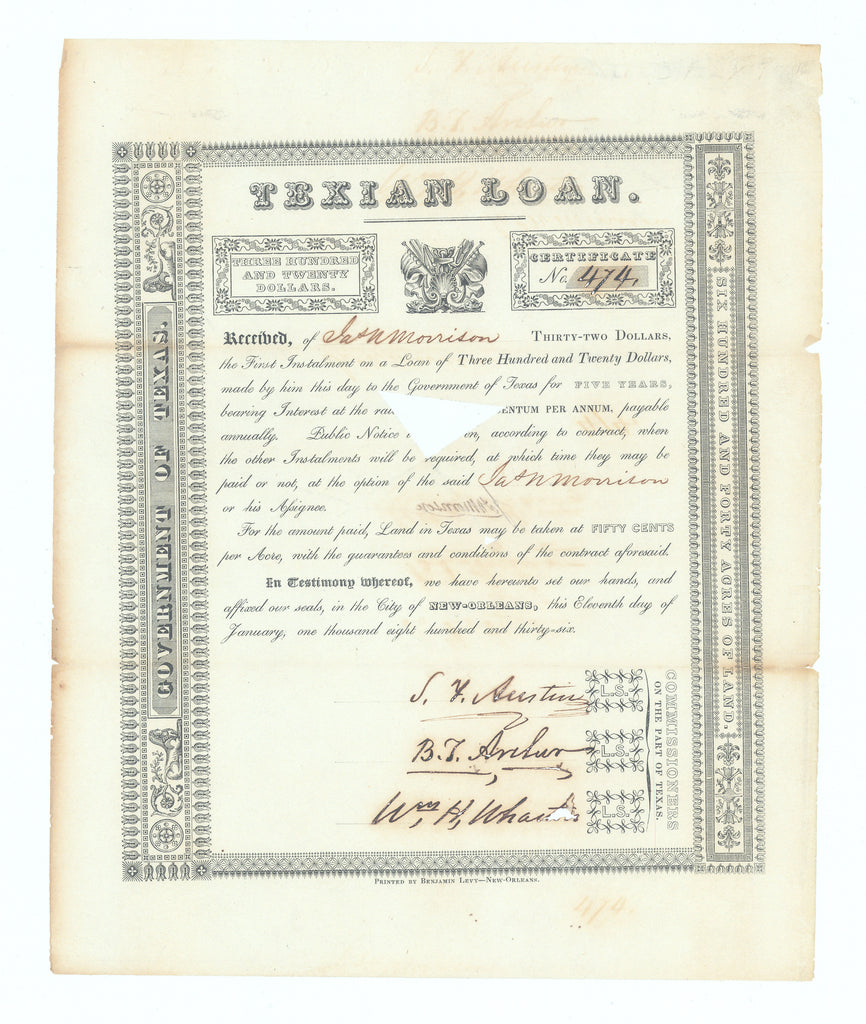 TEXIAN LOAN.
THREE HUNDRED
AND TWENTY
DOLLARS.
CERTIFICATE
No. 474.
Received, of Jas N Morrison THIRTY-TWO DOLLARS,
the First Instalment on a Loan of Three Hundred and Twenty Dollars,
made by him this day to the Government of Texas for FIVE YEARS,
bearing Interest at the ENTUM PER ANNUM, payable
annually. Public Notice on, according to contract, when
the other Instalments will be required, at which time they may be
paid or not, at the option of the said Jas N Morrison
or his Assignee.
For the amount paid, Land in Texas may be taken at FIFTY CENTS
per Acre, with the guarantees and conditions of the contract aforesaid.
In Testimony whereof, we have hereunto set our hands, and
affixed our seals, in the City of NEW-ORLEANS, this Eleventh day of
January, one thousand eight hundred and thirty-six.
S. F. Austin L.S.
B. T. Archer L.S.
Wm. H. Wharton L.S.
COMMISSIONERS
ON THE PART OF TEXAS.
GOVERNMENT OF TEXAS.
SIX HUNDRED AND FORTY ACRES OF LAND.
PRINTED BY BENJAMIN LEVY—NEW-ORLEANS.
474.